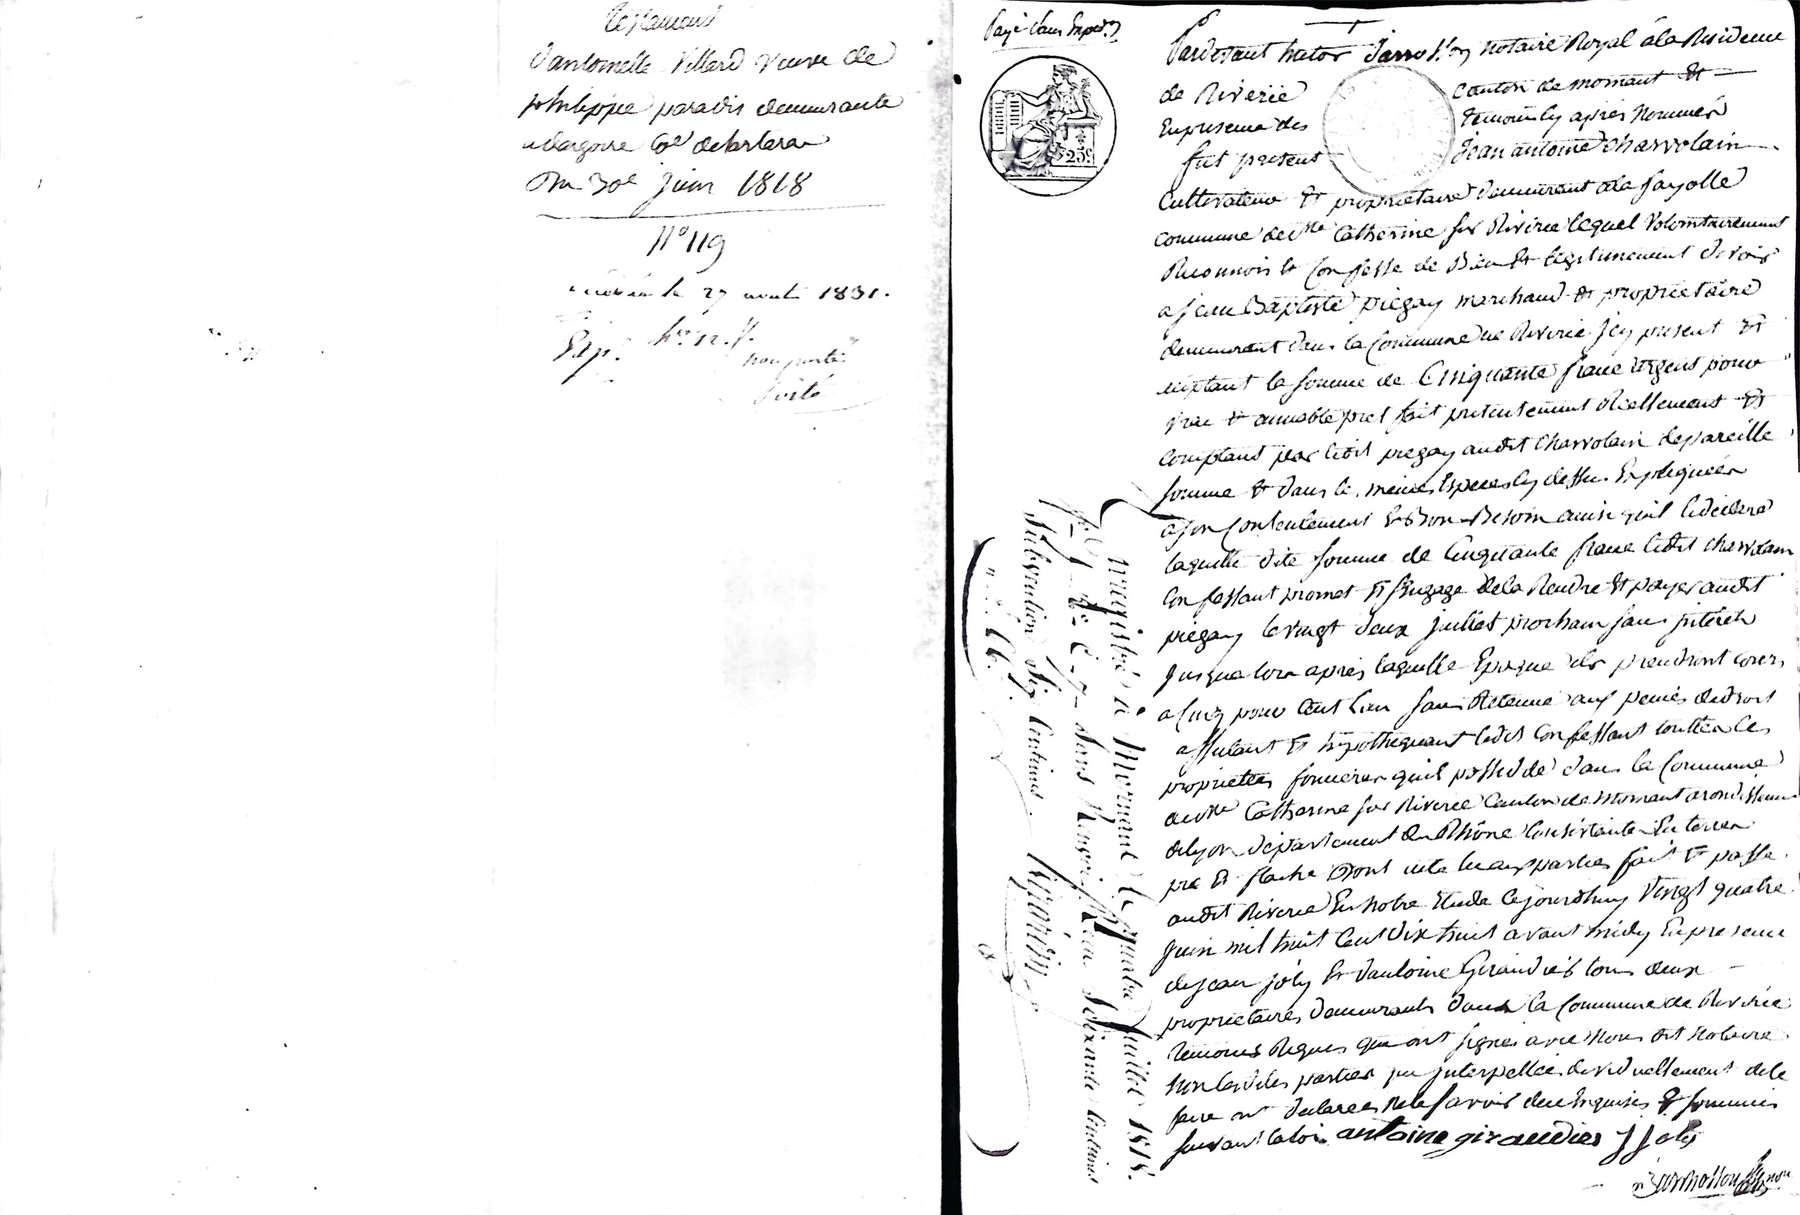 Testament
d'antoinette Villard veuve de
philippe paradis demeurante
a largoire
Du 30e juin 1818
N° 119
le 27 août 1831.
Exp.
non porté
porté
Payé
25c
Pardevant hector notaire Royal à la Residence
de Riverie canton de mornant Et
En presence des temoins cy après Nommés
fut present Jean antoine charvolain
Cultivateur Et proprietaire demeurant ala fayolle
commune de ste Catherine sur Riverie lequel volontairement
Reconnoit Et Confesse de Bien Et legitimement devoir
a jean Baptiste piegay marchand Et proprietaire
demeurant dans la Commune de Riverie Icy present Et
acceptant la somme de Cinquante franc argent pour
vrai Et amiable pret fait presentement Reellement Et
comptant par ledit piegay audit charvolain de pareille
somme Et dans le mêmes Especes cy dessus Expliquées
a son Contentement Et Bon Besoin ainsi quil le declare
laquelle dite somme de Cinquante franc ledit charvolain
Confessant promet Et Sengage de la Rendre Et payer audit
piegay le vingt deux juillet prochain sans jnterets
jusque lors apres laquelle Epoque ils prendront cours
a Cinq pour Cent lan sans Retenue aux peines de droit
affectant Et hypothequant ledit Confessant toutes les
proprietés foncieres quil possede dans la Commune
de ste Catherine sur Riverie Canton de Mornant arondissement
de lyon departement du Rhône Consistantes En terres
pré Et Dont acte aux parties fait Et passé
audit Riverie En notre Etude cejourdhuy vingt quatre
juin mil huit Cent Dix huit avant midy En presence
de jean joly Et dantoine Giraudier tous deux
proprietaires demeurants dans la Commune de Riverie
temoins Requis qui ont signés avec Nous dit Notaire
Non lesdites parties pr jnterpellées de le
faire nt declarées ne le savoir de ce Enquises Et sommées
suivant la loi. antoine giraudier J Joly
Enregistré à Mornant le quatre Juillet 1818.
Reçu Soixante Centimes
Subvention Six Centimes.